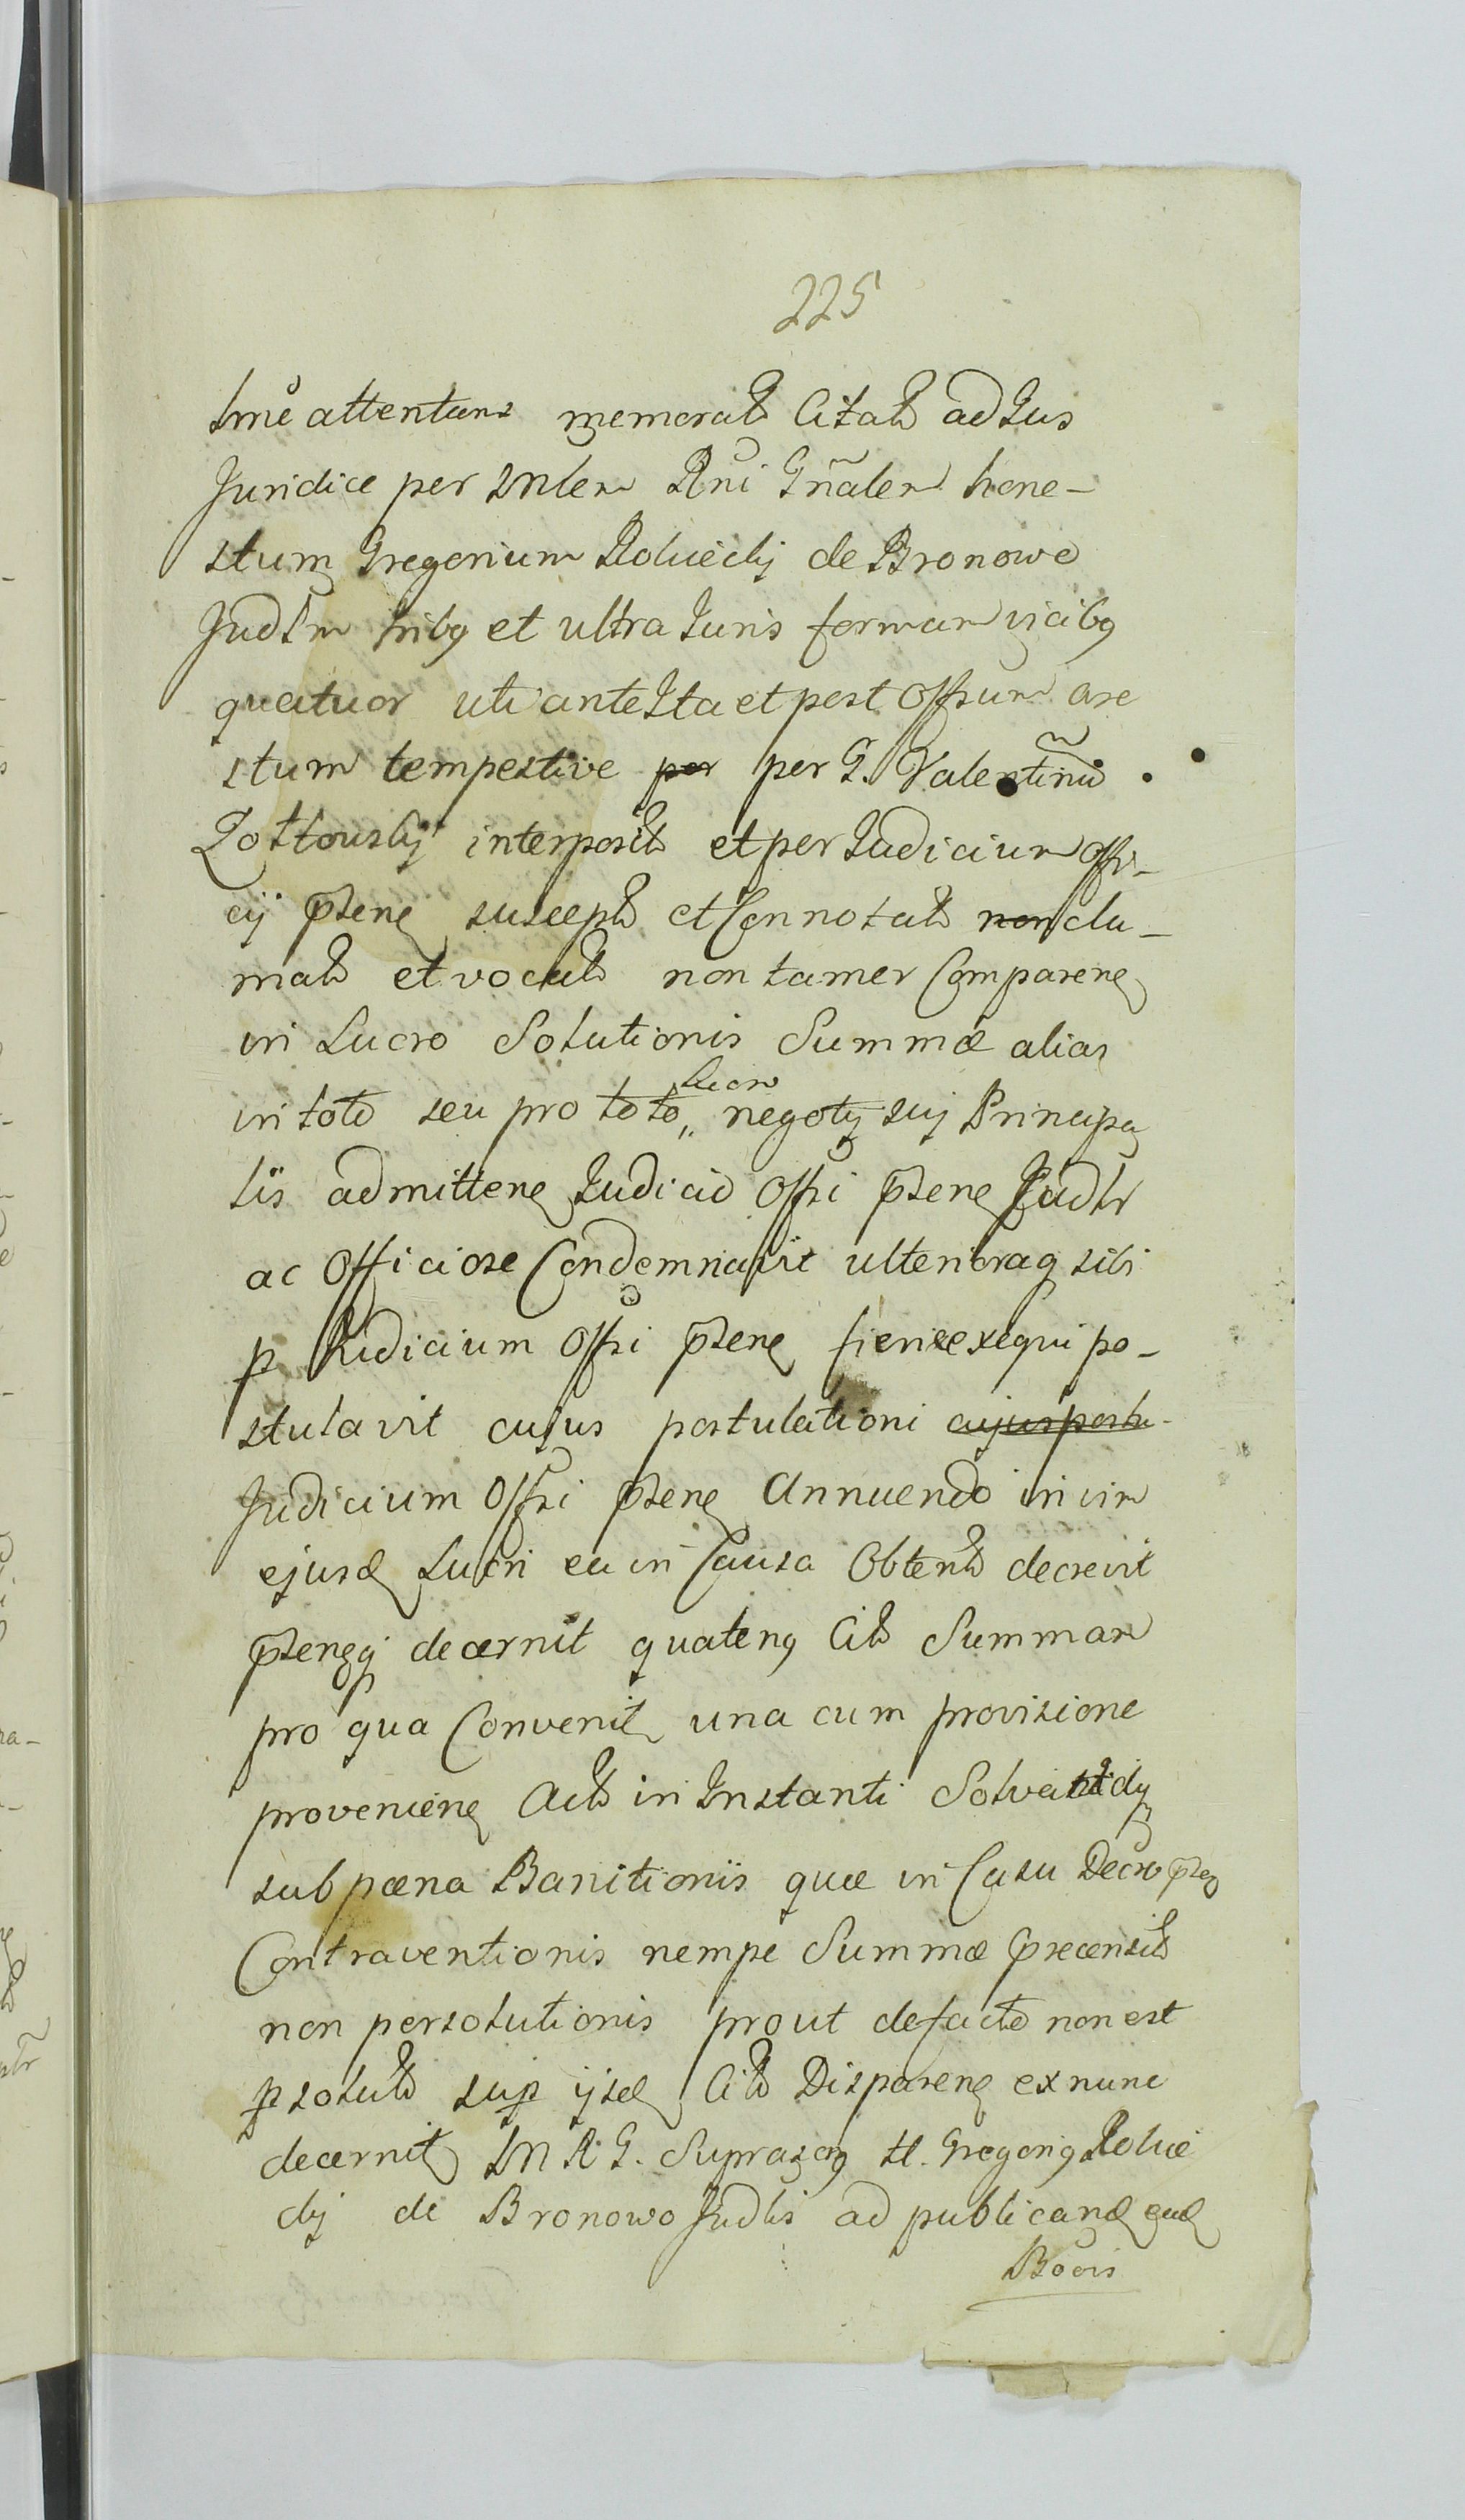 225
tmē attentans memorat Citat ad Jus
Juridice per Mlem Rni Gñalem hone-
stum Gregorium de Bronowo
Judlm tribq et ultra Juris formam vicibq
quatuor uti ante Ita et post Offsum are
stum tempestive per per G. Valentinũ
interposit et per Judicium Offi-
cij pñtene suscept et Connotat non cla-
mat et vocat non tamen Comparene
in Lucro Solutionis Summæ alias
in toto seu pro toto „ Lucro negotij sui Principa
lis admittene Judicio Offi pñtene Judlr
ac Officiose Condemnavit ulterioraq sibi
p Judicium Offi pñtene fieri exequi po-
stulavit cujus postulationi cujus postu-
Judicium Offi pñtene Annuendo in vim
ejusd Lucri ea in Causa Obtent decrevit
pñteneq decernit quatenq Cit Summam
pro qua Convenit una cum provisione
proveniene Act in Instanti Solvat
sub pæna Banitionis quæ in Casu Decro pñtene
Contraventionis nempe Summæ precensit
non persolutionis prout de facto non est
psolut sup ijsd Cit Disparene ex nunc
decernit M R G. Suprascrq H. Gregoriq
de Bronowo Judlis ad publicand eand
Bōōis